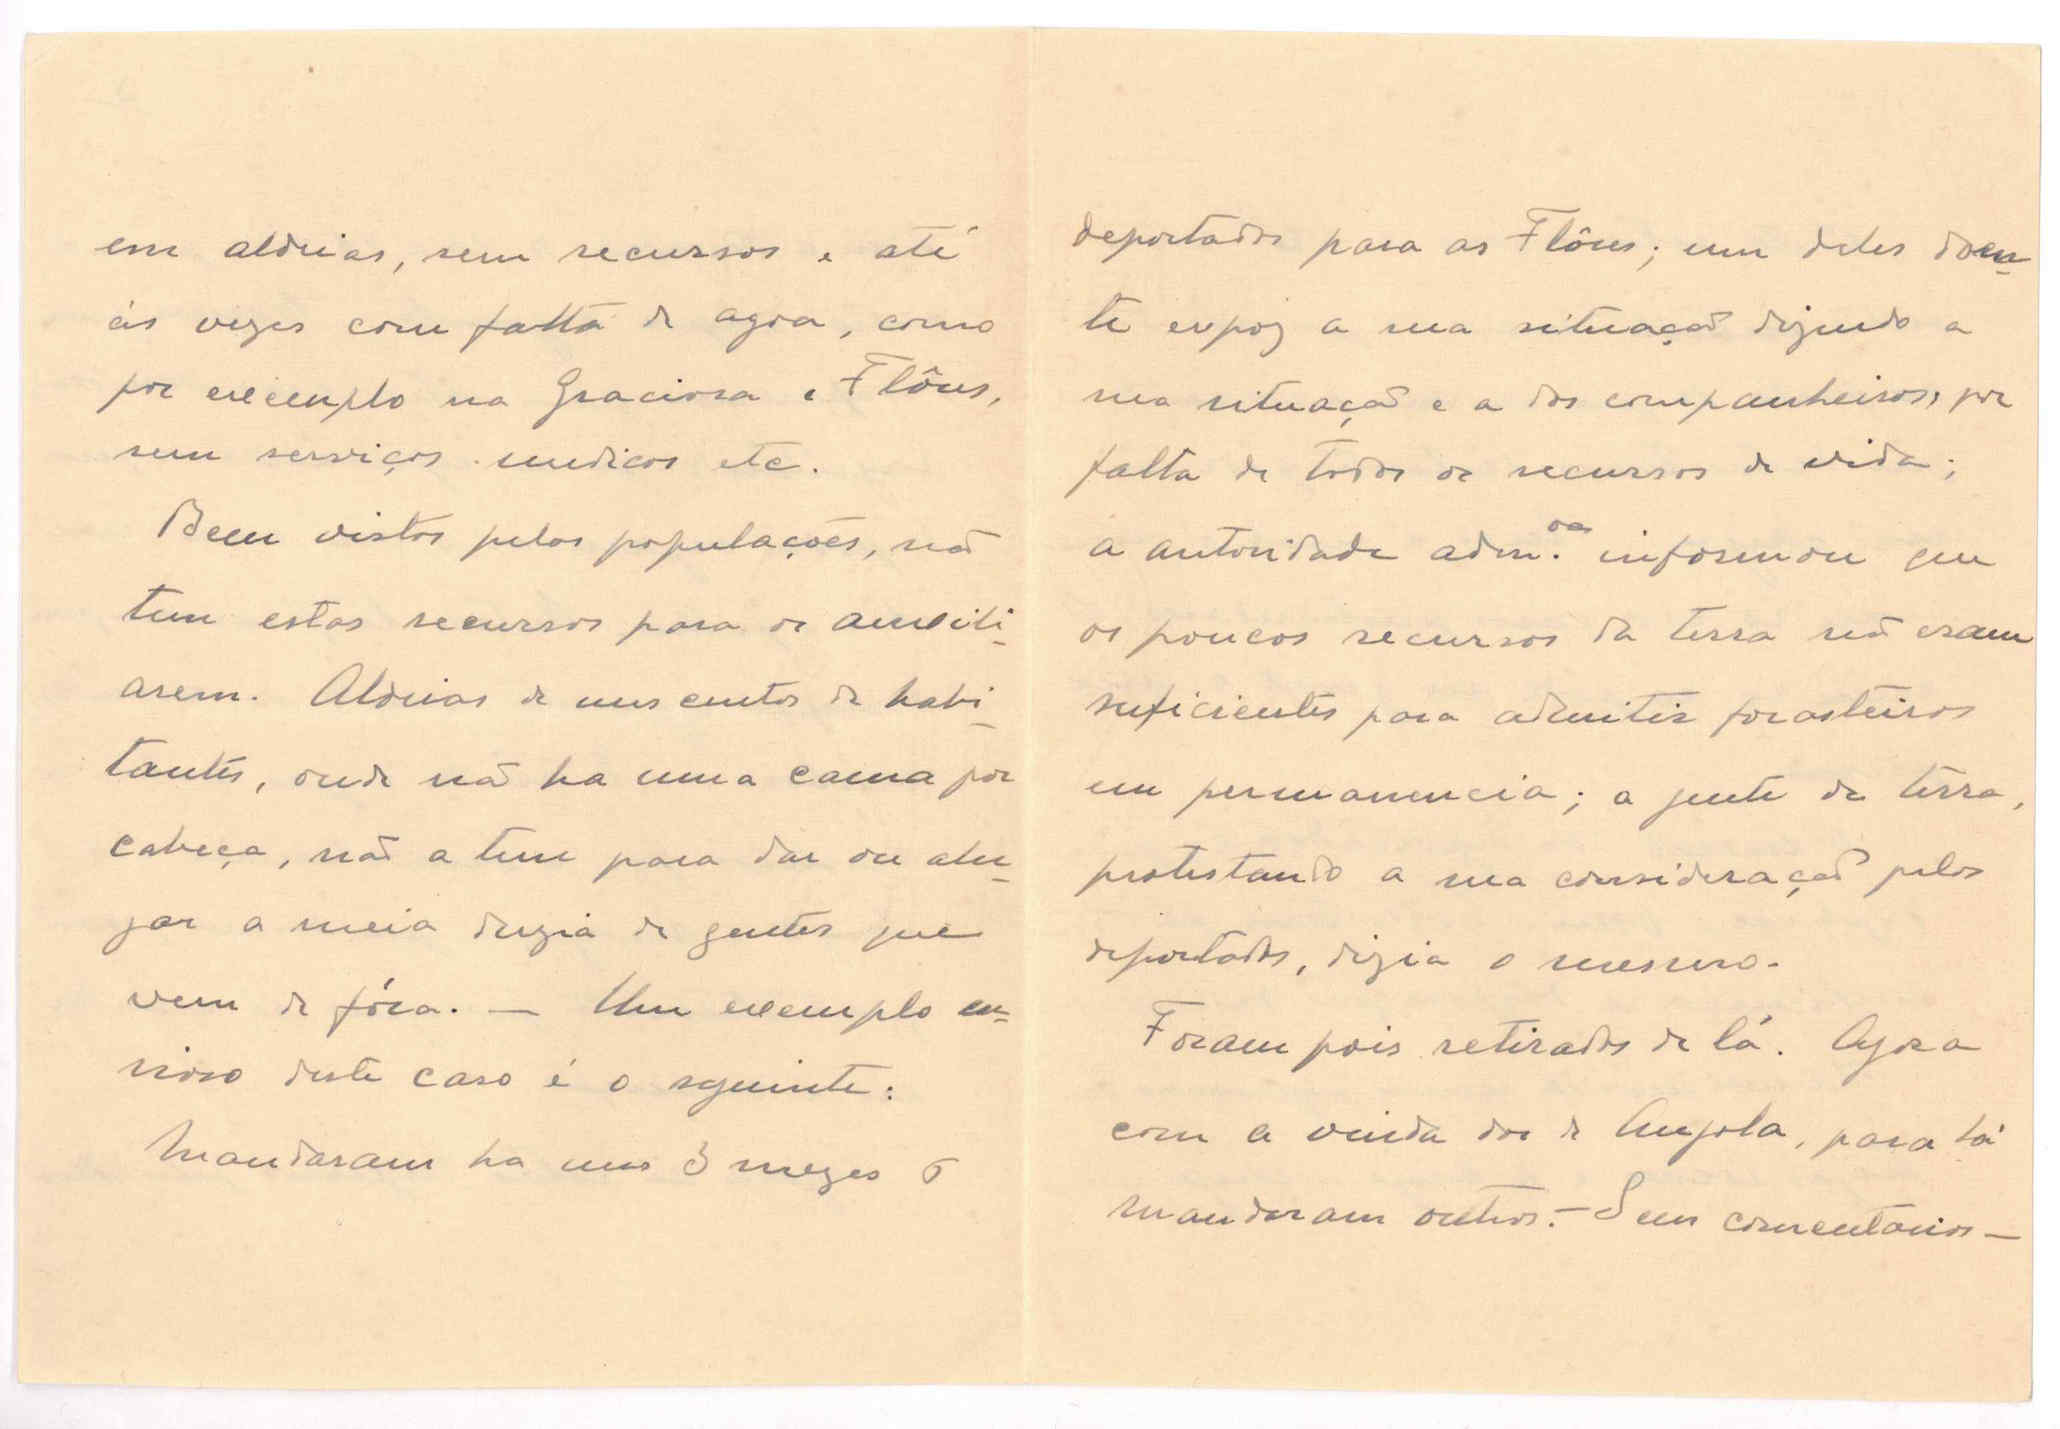 em aldeias, sem recursos e até
ás vezes com falta de agoa, como
por exemplo na Graciosa e Flôres,
sem serviços medicos etc.
Bem vistos pelas populações, não
tem estas recursos para os auxili-
arem. Aldeias de uns centos de habi-
tantes, onde não ha uma cama por
cabeça, não a tem para dar ou alu-
gar a meia duzia de gentes que
vem de fóra. — Um exemplo cu-
rioso deste caso é o seguinte:
Mandaram ha uns 3 mezes 6
deportados para as Flôres; um deles doen-
te expoz a sua situação dizendo a
sua situação e a dos companheiros, por
falta de todos os recursos de vida;
a autoridade adm.va informou que
os poucos recursos da terra não eram
suficientes para admitir forasteiros
em permanencia; a gente da terra,
protestando a sua consideração pelos
deportados, dizia o mesmo.
Foram pois retirados de lá. Agora
com a vinda dos de Angola, para lá
mandaram outros. — Sem comentarios —